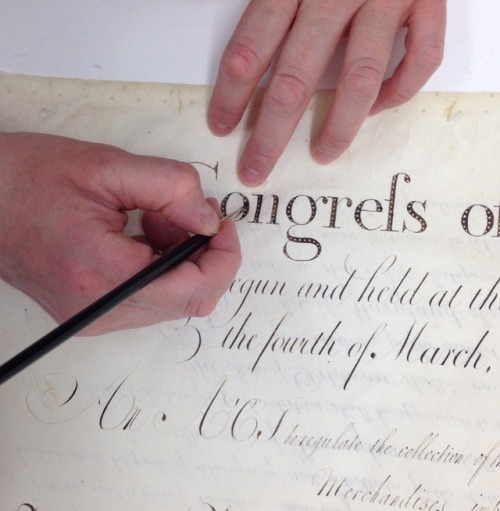 Congreſs of
egun and held at th
the fourth of March,
An ACT to regulate the collection of
Merchandises